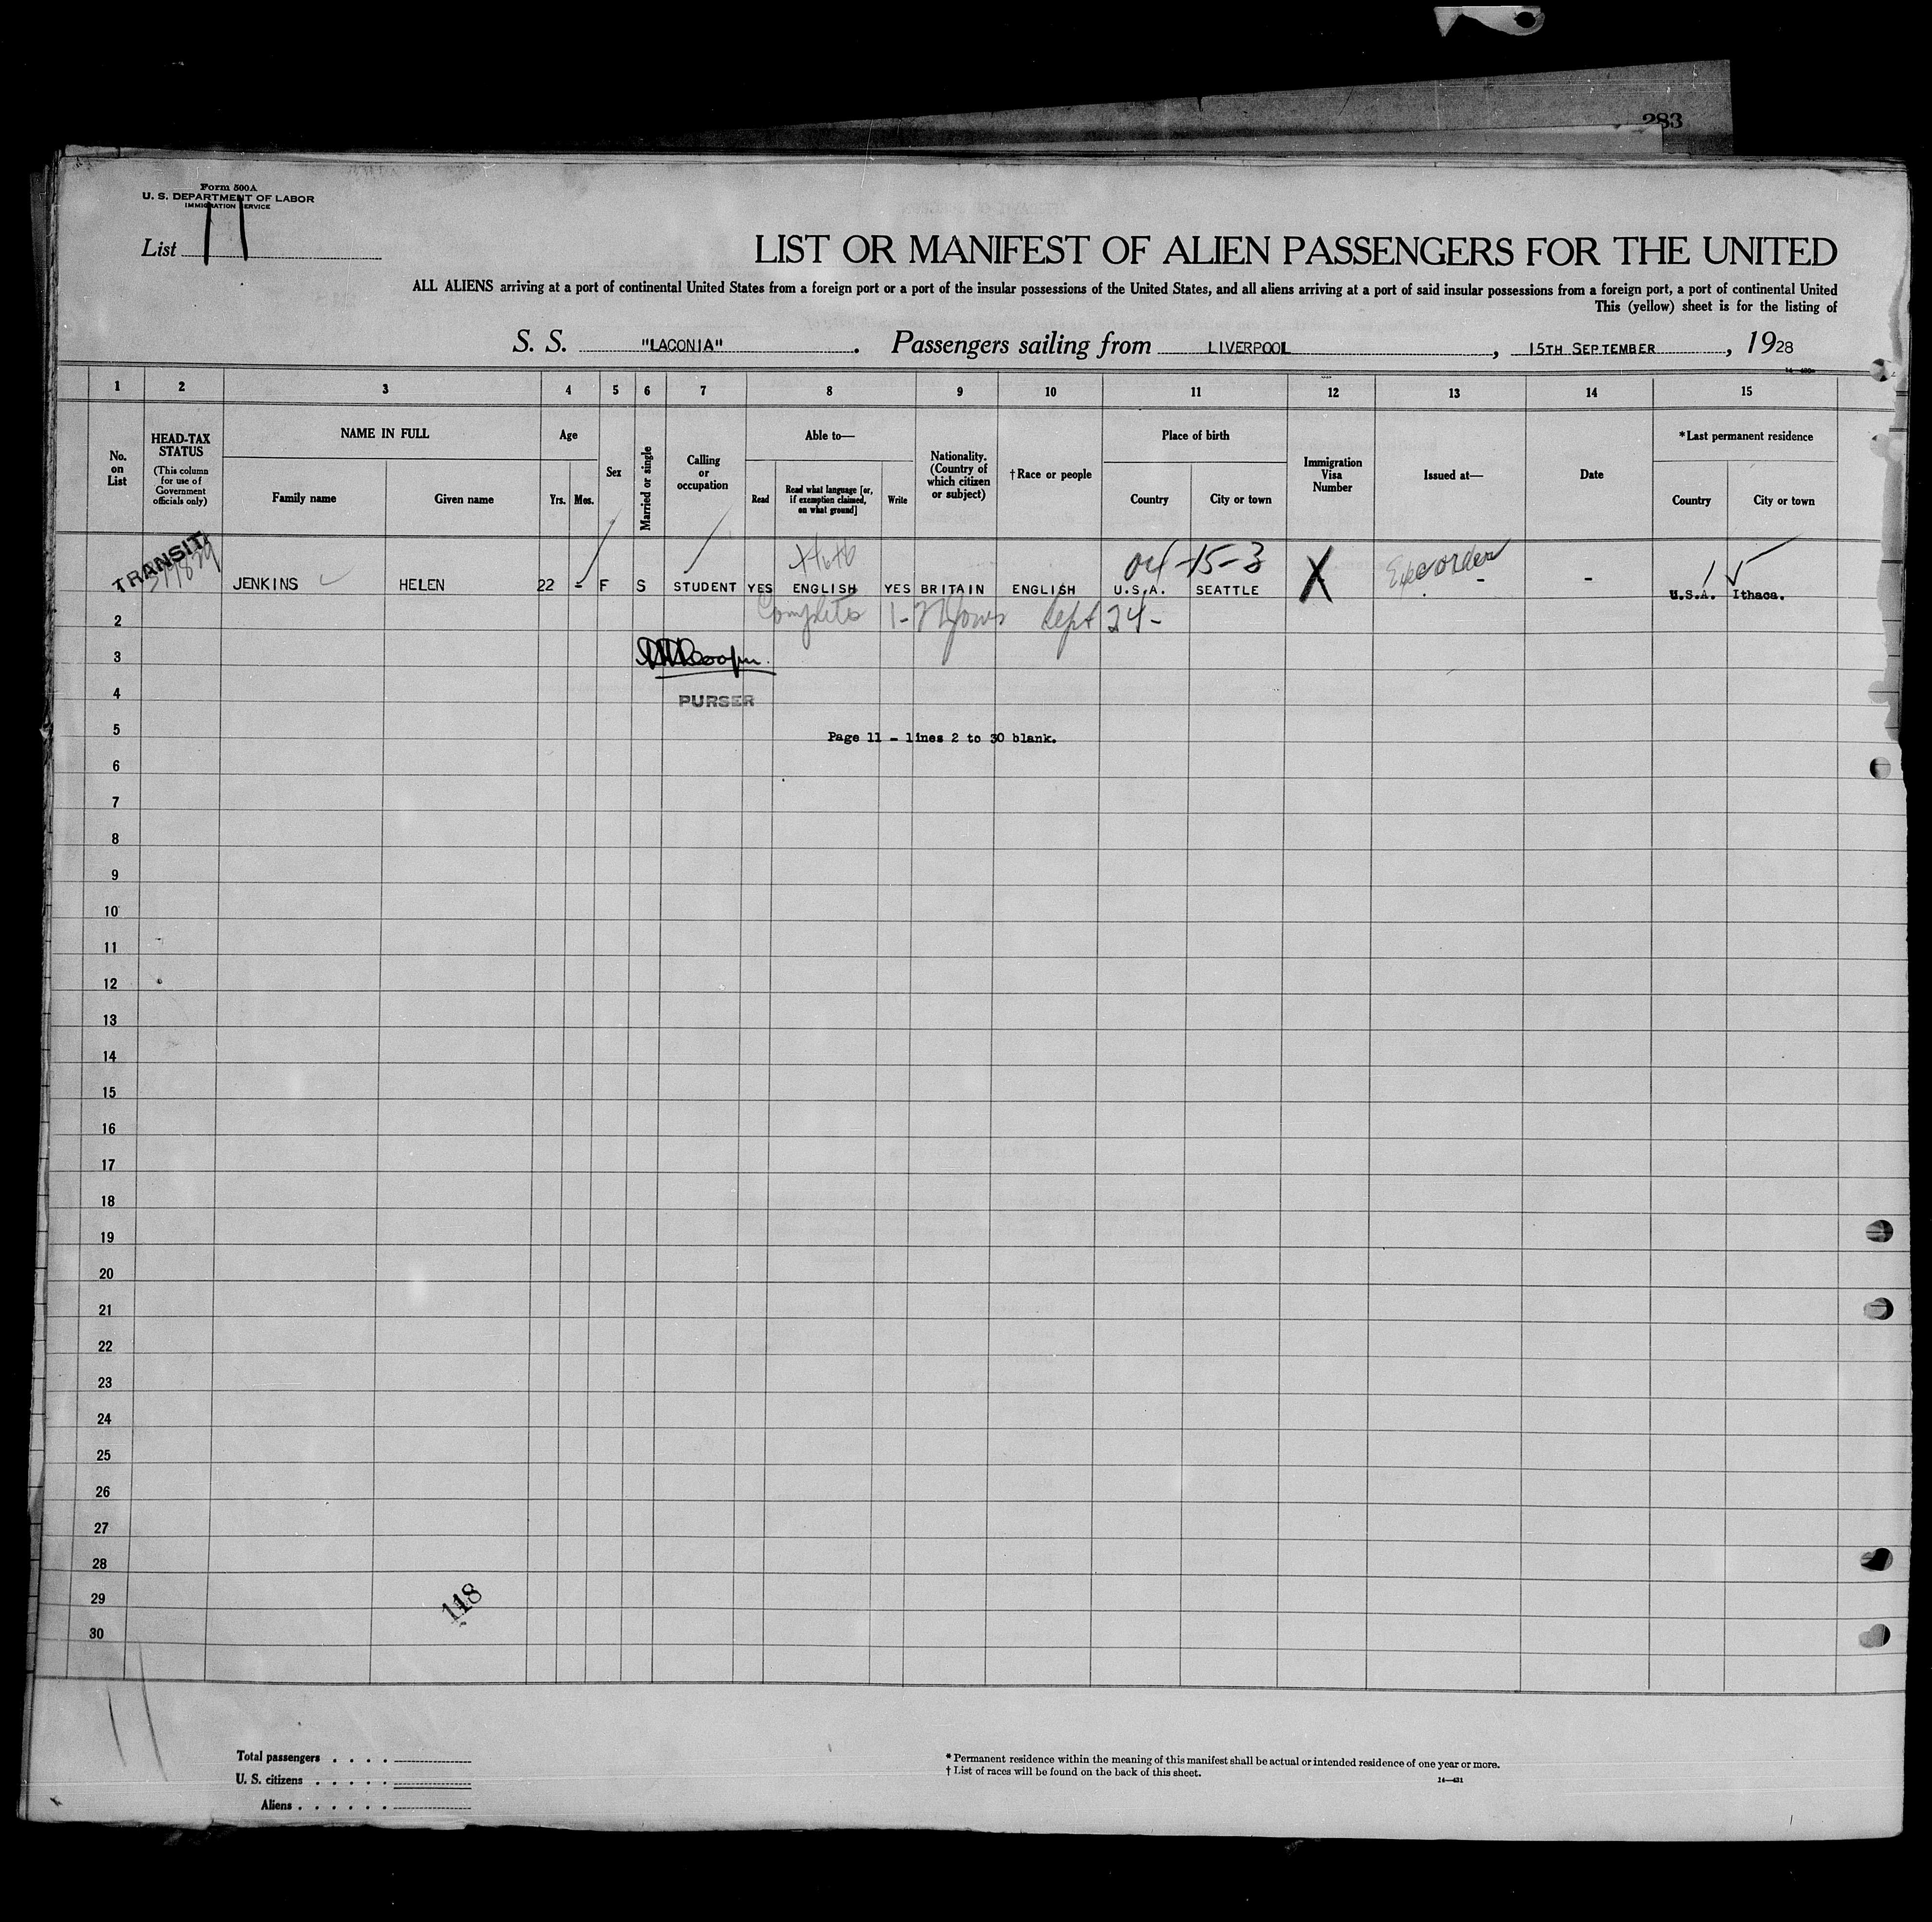 283
Form 500A
U. S. DEPARTMENT OF LABOR
IMMIGRATION SERVICE
List 11
LIST OR MANIFEST OF ALIEN PASSENGERS FOR THE UNITED
ALL ALIENS arriving at a port of continental United States from a foreign port or a port of the insular possessions of the United States, and all aliens arriving at a port of said insular possessions from a foreign port, a port of continental United
This (yellow) sheet is for the listing of
S. S. "LACONIA". Passengers sailing from LIVERPOOL, 15TH SEPTEMBER, 1928
1 2 3 4 5 6 7 8 9 10 11 12 13 14 15
No. on List
HEAD-TAX STATUS (This column for use of Government officials only)
NAME IN FULL
Family name
Given name
Age
Yrs. Mos.
Sex
Married or single
Calling or occupation
Able to—
Read
Read what language [or, if exemption claimed, on what ground]
Write
Nationality. (Country of which citizen or subject)
†Race or people
Place of birth
Country
City or town
Immigration Visa Number
Issued at—
Date
*Last permanent residence
Country
City or town
TRANSIT
JENKINS HELEN 22 - F S STUDENT YES ENGLISH YES BRITAIN ENGLISH U.S.A. SEATTLE X - - U.S.A. Ithaca.
2 Complete Sept 24-
3
4 PURSER
5 Page 11 - lines 2 to 30 blank.
6
7
8
9
10
11
12
13
14
15
16
17
18
19
20
21
22
23
24
25
26
27
28
29
118
30
Total passengers . . . .
U. S. citizens . . . . .
Aliens . . . . . .
* Permanent residence within the meaning of this manifest shall be actual or intended residence of one year or more.
† List of races will be found on the back of this sheet.
14—431